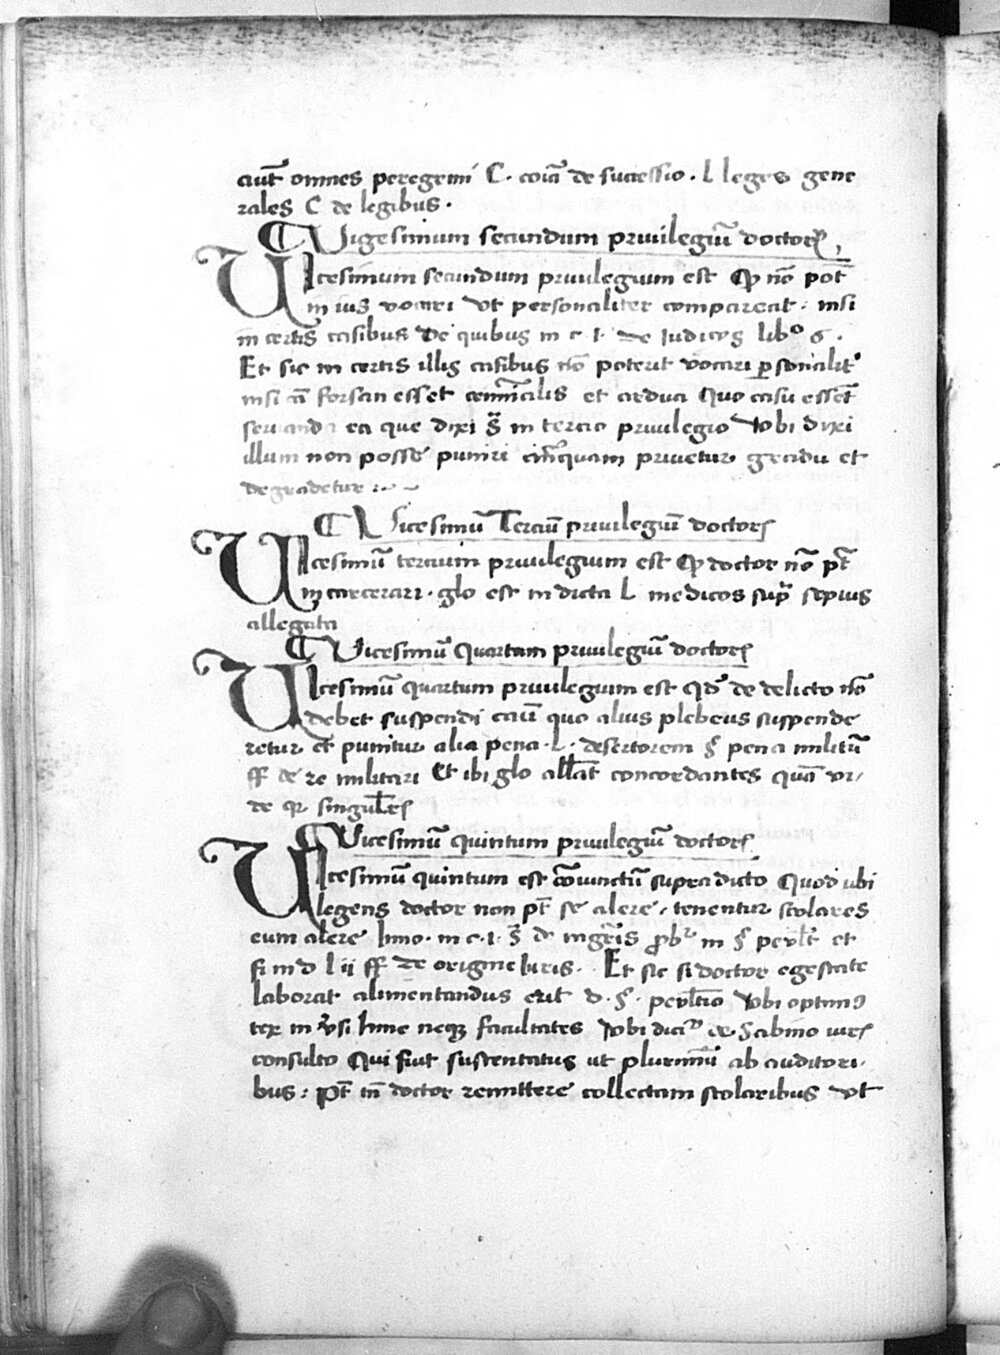 aut̄ omnes peregrini C. coīa de successio. l leges gene
rales C de legibus.
Vigesimum secundum priuilegiū doctoꝝ
Vicesimum secundum priuilegium est ꝙ nō pot̄
in ius vocari vt personaliter compareat. nisi
in certis casibus de quibus in c. 1. de Iudicijs libº 6.
Et sic in certis illis casibus nō poterit vocari ꝑsonalit'
nisi forsan esset criminalis et ardua Quo casu essēt
seruanda ea que dixi in tercio priuilegio Vbi dixi
illum non posse puniri priuetur gradu et
degradetur
Vicesimū Terciū priuilegiū doctoꝝ
Vicesimū tercium priuilegium est ꝙ doctor nō pt̄
incarcerari. glo est in dicta l. medicos supꝛ̄ sepius
allegata
Vicesimū Quartum priuilegiū doctoꝝ
Vicesimū quartum priuilegium est qd̄ de delicto nō
debet suspendi quo alius plebeus suspende
retur et punitur alia pena. l. desertorem § pena militū
ff de re militari Et ibi glo all̄at concordantes quā vi/
de singul̄es
Vicesimū quintum priuilegiū doctoꝝ
Vicesimū quintum est cōiunctū supradicto Quod ubi
legens doctor non pt̄ se alere, tenentur scolares
eum alere Imo. in c. 1. de magr̄is in § et
fi in d l ii ff de origine Iuris. Et sic si doctor egestate
laborat alimentandus erit d. §. Vbi optimꝰ
tex in neqꝫ facultates Vbi de Sabino iurꝭ
consulto Qui fiut sustentatus ut plurimū ab auditori.
bus: Pt̄ tn̄ doctor remittere collectam scolaribus vt